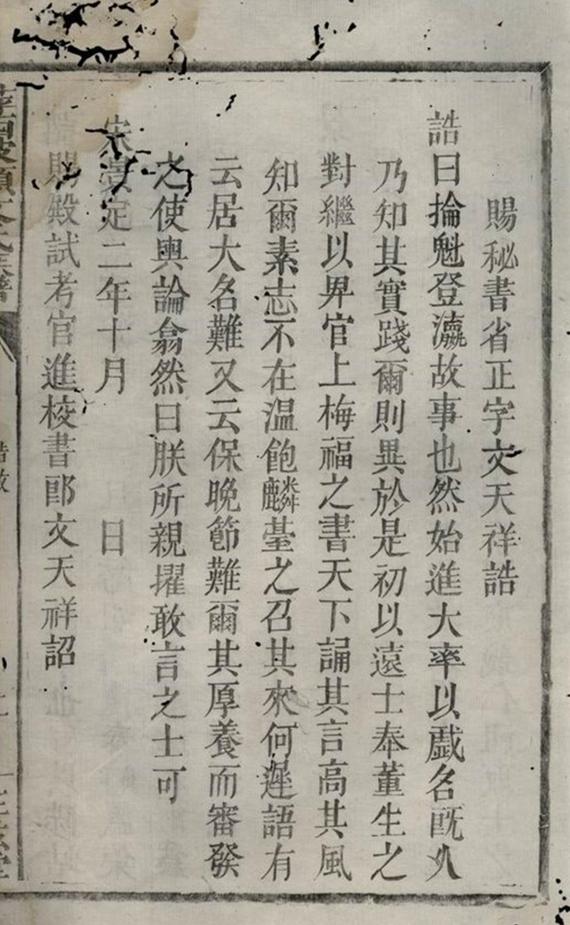 賜秘書省正字文天祥誥
誥曰掄魁登瀛故事也然始進大率以戲名旣久
乃知其實踐爾則異於是初以遠士奉董生之
對繼以畀官上梅福之書天下誦其言高其風
知爾素志不在溫飽麟臺之召其來何遲語有
云居大名難又云保晚節難爾其厚養而審發
之使輿論翕然曰朕所親擢敢言之士可
宋景定二年十月　日
賜殿試考官進校書郎文天祥詔